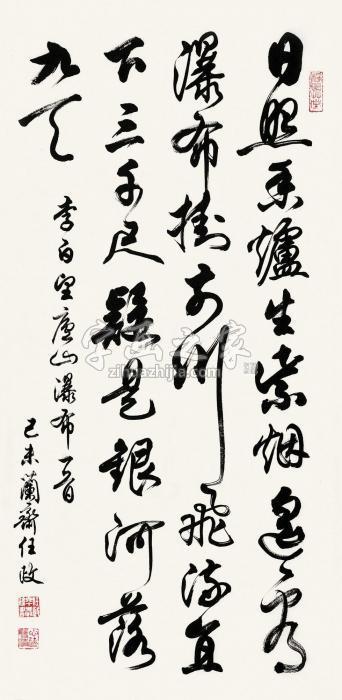 日照香爐生紫烟遥看
瀑布掛前川飛流直
下三千尺疑是銀河落
九天
李白望廬山瀑布一首
己未蘭齋任政
字画之家
zihuazhijia.com